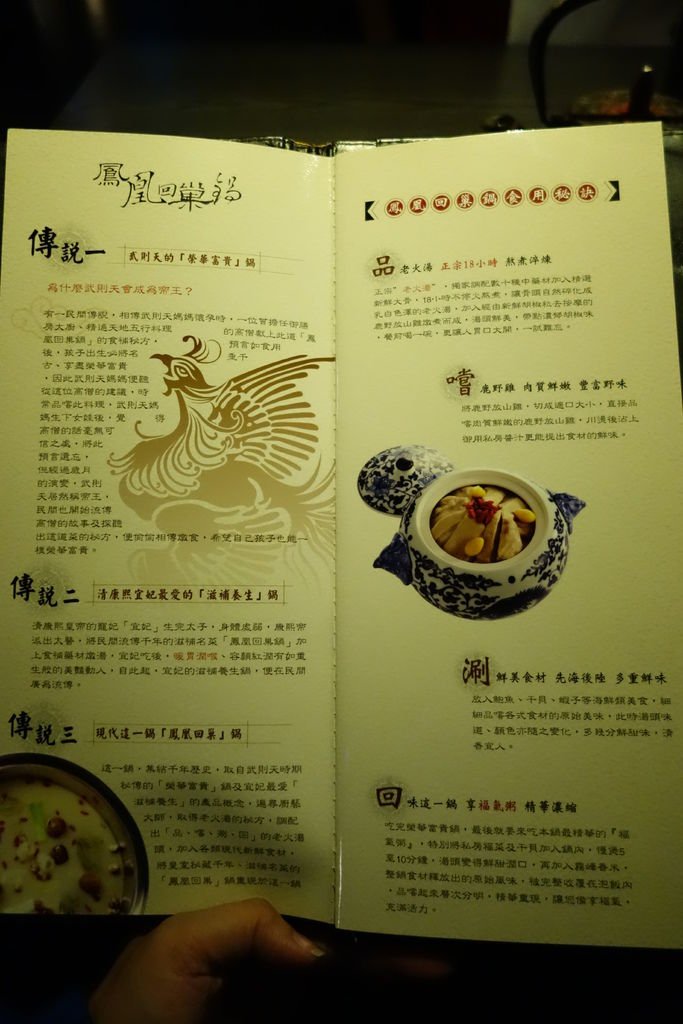 鳳凰回巢鍋
傳說一 武則天的「榮華富貴」鍋
為什麼武則天會成為帝王？
有一民間傳說，相傳武則天媽媽懷孕時，一位曾擔任御膳
房大廚、精通天地五行料理 的高僧獻上此道「鳳
凰回巢鍋」的食補秘方， 預言如食用
後，孩子出生必將名 垂千
古、享盡榮華富貴
，因此武則天媽媽便聽
從這位高僧的建議，時
常品嚐此料理，武則天媽
媽生下女娃後，覺 得
高僧的話毫無可
信之處，將此
預言遺忘，
但經過歲月
的演變，武則
天居然稱帝王，
民間也開始流傳
高僧的故事及探聽
出這道菜的秘方，便偷偷相傳燉食，希望自己孩子也能一
樣榮華富貴。
傳說二 清康熙宜妃最愛的「滋補養生」鍋
清康熙皇帝的寵妃「宜妃」生完太子，身體虛弱，康熙帝
派出太醫，將民間流傳千年的滋補名菜「鳳凰回巢鍋」加
上食補藥材燉湯，宜妃吃後，暖胃潤喉、容顏紅潤有如重
生般的美豔動人，自此起，宜妃的滋補養生鍋，便在民間
廣為流傳。
傳說三 現代這一鍋「鳳凰回巢」鍋
這一鍋，集結千年歷史，取自武則天時期
秘傳的「榮華富貴」鍋及宜妃最愛「
滋補養生」的產品概念，遍尋廚藝
大師，取得老火湯的秘方，調配
出「品、嚐、涮、回」的老火湯
頭，加入各類現代新鮮食材，
將皇室秘藏千年、滋補名菜的
「鳳凰回巢」鍋重現於這一鍋
鳳凰回巢鍋食用秘訣
品 老火湯 正宗18小時 熬煮淬煉
正宗"老火湯"，獨家調配數十種中藥材加入精選
新鮮大骨，18小時不停火熬煮，讓骨頭自然碎化成
乳白色澤的老火湯，加入經由新鮮胡椒粒去按摩的
鹿野放山雞燉煮而成，湯頭鮮美，帶點濃郁胡椒味
，餐前喝一碗，更讓人胃口大開，一試難忘。
嚐 鹿野雞 肉質鮮嫩 豐富野味
將鹿野放山雞，切成適口大小，直接品
嚐肉質鮮嫩的鹿野放山雞，川燙後沾上
御用私房醬汁更能提出食材的鮮味。
涮 鮮美食材 先海後陸 多重鮮味
放入鮑魚、干貝、蝦子等海鮮類美食，細
細品嚐各式食材的原始美味，此時湯頭味
道、顏色亦隨之變化，多幾分鮮甜味，清
香宜人。
回 味這一鍋 享福氣粥 精華濃縮
吃完榮華富貴鍋，最後就要來吃本鍋最精華的『福
氣粥』，特別將私房福菜及干貝加入鍋內，慢煲5
至10分鐘，湯頭變得鮮甜潤口，再加入霧峰香米，
整鍋食材釋放出的原始風味，被完整收覆在泡飯內
，品嚐起來層次分明，精華重現，讓您備享福氣、
充滿活力。